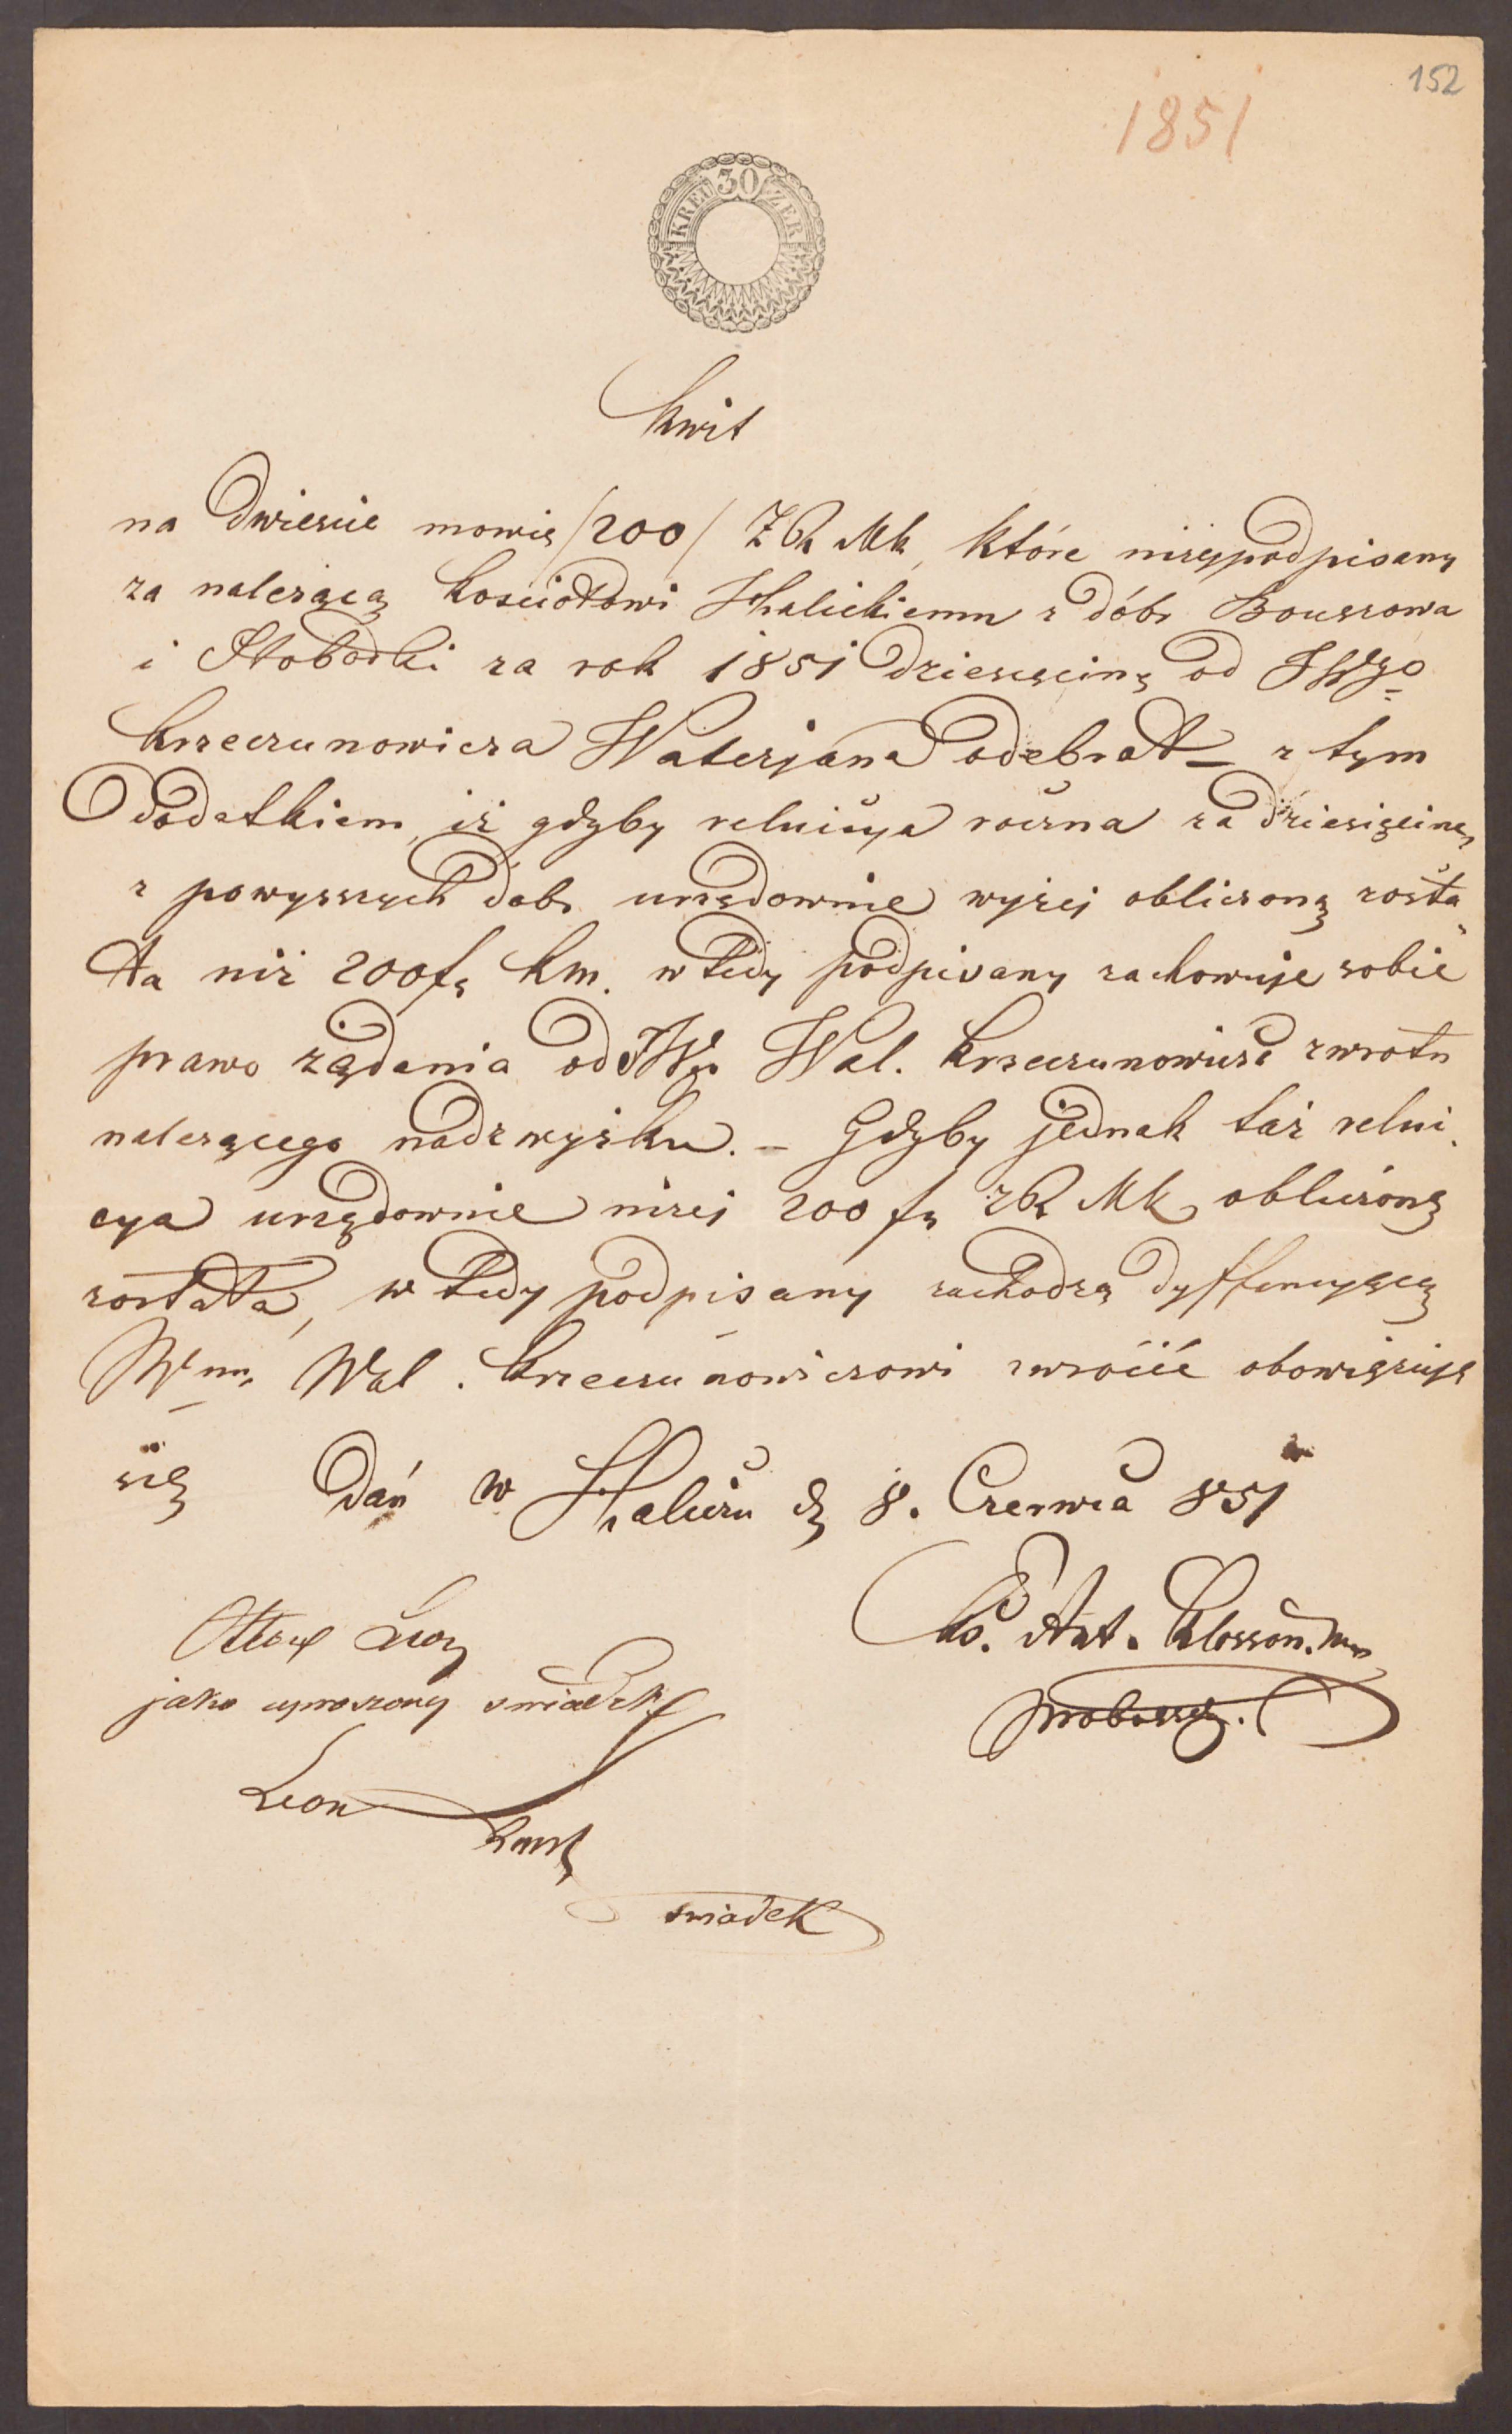 152
1851
30
KREUZER
Kwit
na Dwieście mowię /200/ ZR Mk, które niżejpodpisany
za należącą kościołowi Halickiemu z dóbr Bouszowa
i Słobodki za rok 1851 dziesięcinę od JWgo
Krzeczunowicza Walerjana odebrał – z tym
Dodatkiem, iż gdyby reluicya roczna za dziesięcinę
z powyższych dóbr urzędownie wyżej obliczoną zosta
ła niż 200 fr Km. w tedy podpisany zachowuje sobie
prawo żądania od JW Wal. Krzeczunowicza zwrotu
należącego nadzwyżku. – Gdyby jednak taż relui
cya urzędownie niżej 200 fr ZR Mk obliczoną
została, w tedy podpisany zachodzą dyfferencyącą
Wmu Wal. Krzeczunowiczowi zwrócić obowięzuje
się Dań w Haliczu d 8. Czerwca 851
Ks. Ant.
proboszcz.
jako uproszony swiadek
Leon
swiadek